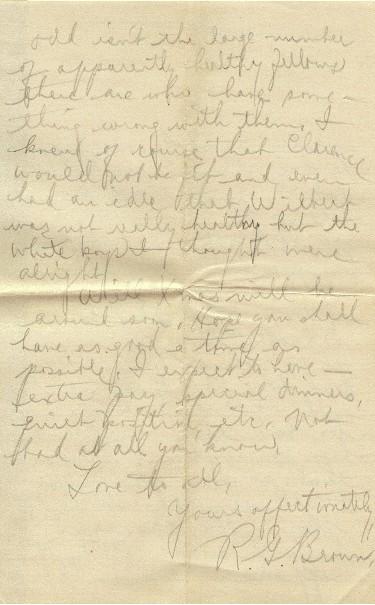 odd isn't the large number
of apparently healthy fellows
there are who have some-
thing wrong with them. I
knew of course that Clarence
would not be fit and even
had an idea that Wilbert
was not really healthy but the
white boys I thought were
alright.
Well Xmas will be
around soon, Hope you shall
have as good a time as
possible. I expect to have
extra pay, special dinners,
quiet etc. Not
bad at all you know.
Love to all,
Yours affectionately,
R. G. Brown.